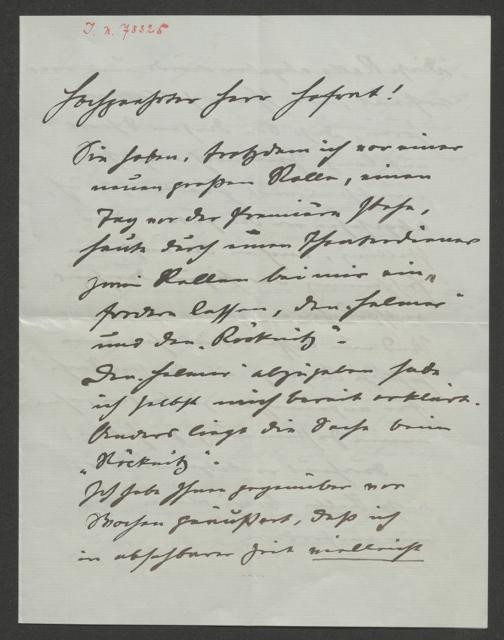 J. N. 78325
Hochgeehrter Herr Hofrat!
Sie haben, trotzdem ich vor einer
neuen großen Rolle, einen
Tag vor der Première stehe,
heute durch einen Theaterdiener
zwei Rollen bei mir ein„
fordern lassen, den „Helmer"
und den „Röcknitz".
Den „Helmer" abzugeben habe
ich selbst mich bereit erklärt.
Anders liegt die Sache beim
„Röcknitz".
Ich habe Ihnen gegenüber vor
Wochen geäußert, daß ich
in absehbarer Zeit vielleicht